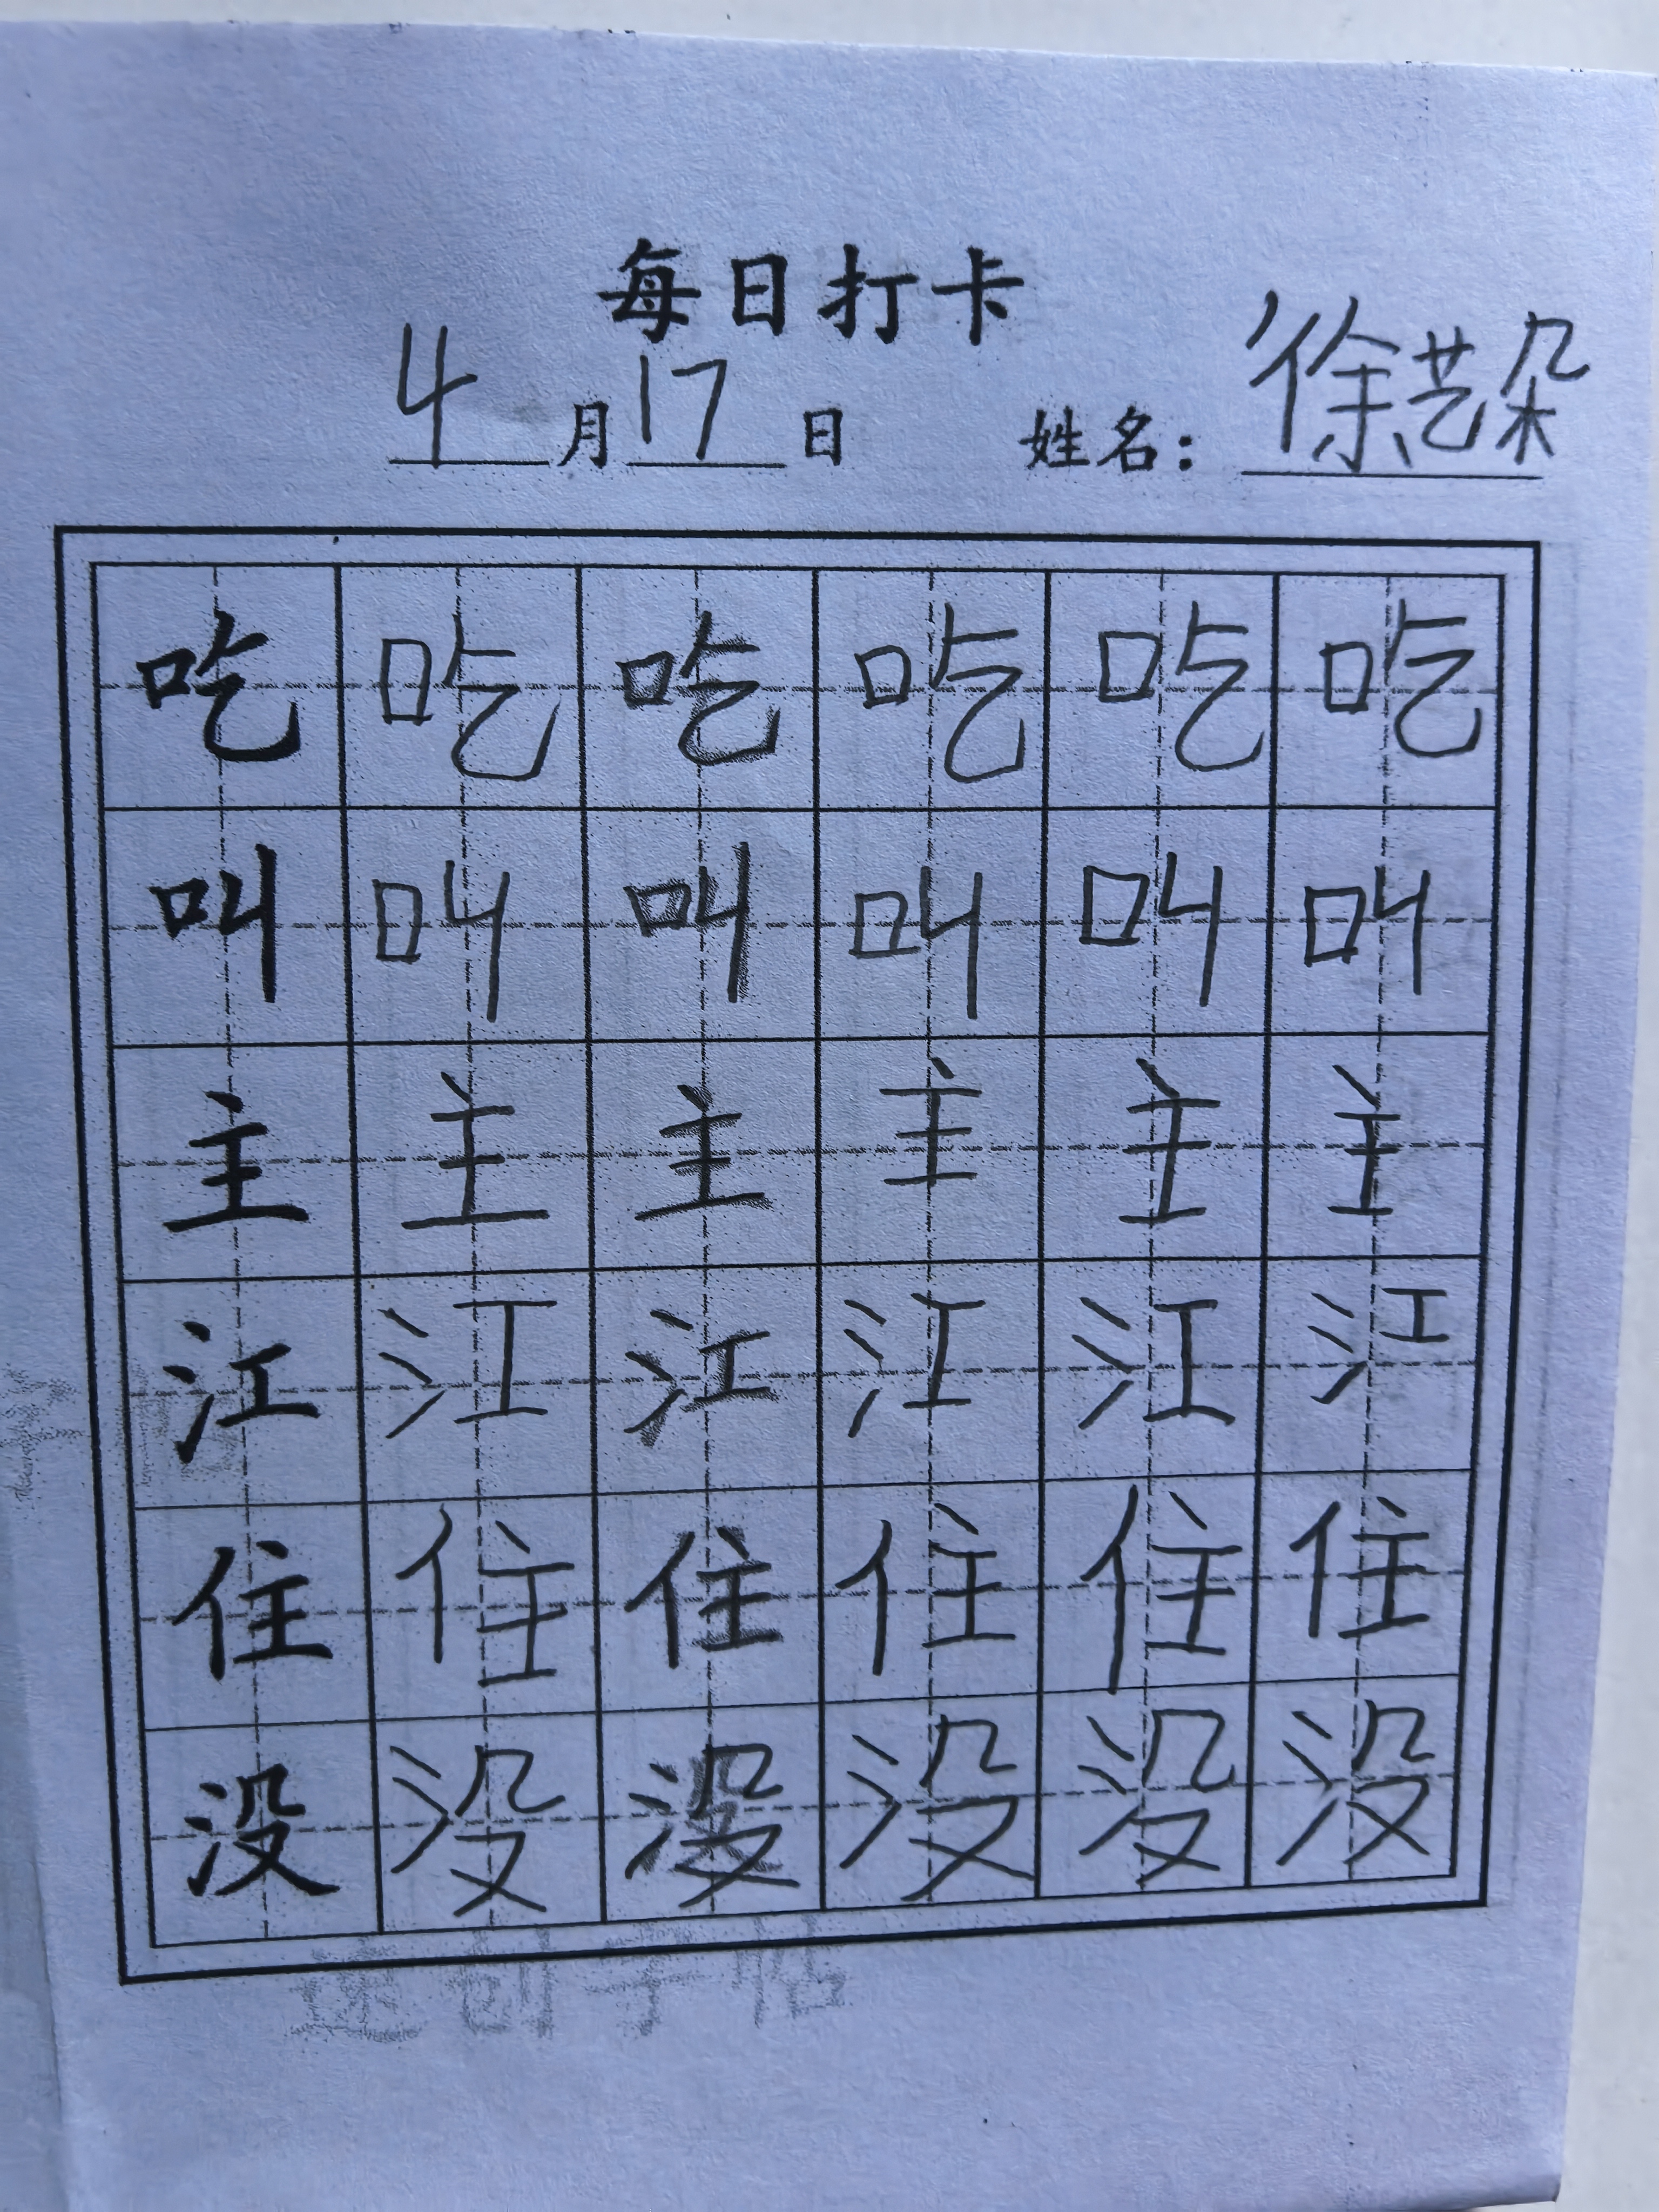 每日打卡
4月17日 姓名：徐艺朵
吃吃吃吃吃吃
叫叫叫叫叫叫
主主主主主主
江江江江江江
住住住住住住
没没没没没没